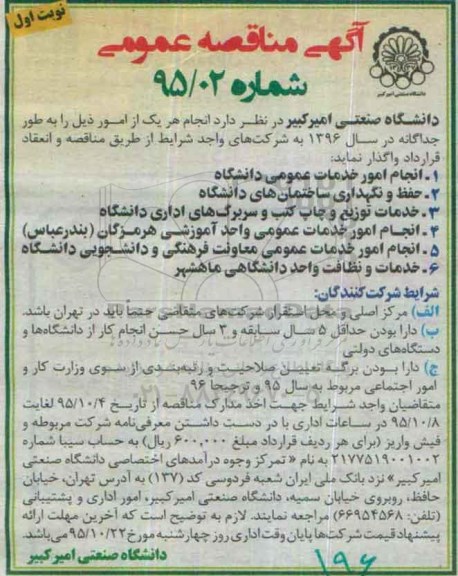 نوبت اول
آگهی مناقصه عمومی
شماره ۹۵/۰۲
دانشگاه صنعتی امیرکبیر
دانشگاه صنعتی امیرکبیر در نظر دارد انجام هر یک از امور ذیل را به طور
جداگانه در سال ۱۳۹۶ به شرکت‌های واجد شرایط از طریق مناقصه و انعقاد
قرارداد واگذار نماید:
۱ـ انجام امور خدمات عمومی دانشگاه
۲ـ حفظ و نگهداری ساختمان‌های دانشگاه
۳ـ خدمات توزیع و چاپ کتب و سربرگ‌های اداری دانشگاه
۴ـ انجام امور خدمات عمومی واحد آموزشی هرمزگان (بندرعباس)
۵ـ انجام امور خدمات عمومی معاونت فرهنگی و دانشجویی دانشگاه
۶ـ خدمات و نظافت واحد دانشگاهی ماهشهر
شرایط شرکت‌کنندگان:
الف) مرکز اصلی و محل استقرار شرکت‌های متقاضی حتماً باید در تهران باشد.
ب) دارا بودن حداقل ۵ سال سابقه و ۳ سال حسن انجام کار از دانشگاه‌ها و
دستگاه‌های دولتی
ج) دارا بودن برگه تعیین صلاحیت و رتبه‌بندی از سوی وزارت کار و
امور اجتماعی مربوط به سال ۹۵ و ترجیحا ۹۶
متقاضیان واجد شرایط جهت اخذ مدارک مناقصه از تاریخ ۹۵/۱۰/۴ لغایت
۹۵/۱۰/۸ در ساعات اداری با در دست داشتن معرفی‌نامه شرکت مربوطه و
فیش واریز (برای هر ردیف قرارداد مبلغ ۶۰۰,۰۰۰ ریال) به حساب سیبا شماره
۲۱۷۷۵۱۹۰۰۱۰۰۲ به نام « تمرکز وجوه درآمدهای اختصاصی دانشگاه صنعتی
امیرکبیر» نزد بانک ملی ایران شعبه فردوسی کد (۱۳۷) به آدرس تهران، خیابان
حافظ، روبروی خیابان سمیه، دانشگاه صنعتی امیرکبیر، امور اداری و پشتیبانی
(تلفن: ۶۶۹۵۴۵۶۸) مراجعه نمایند. لازم به توضیح است که آخرین مهلت ارائه
پیشنهاد قیمت شرکت‌ها پایان وقت اداری روز چهارشنبه مورخ ۹۵/۱۰/۲۲ می‌باشد.
دانشگاه صنعتی امیرکبیر
۱۹۶